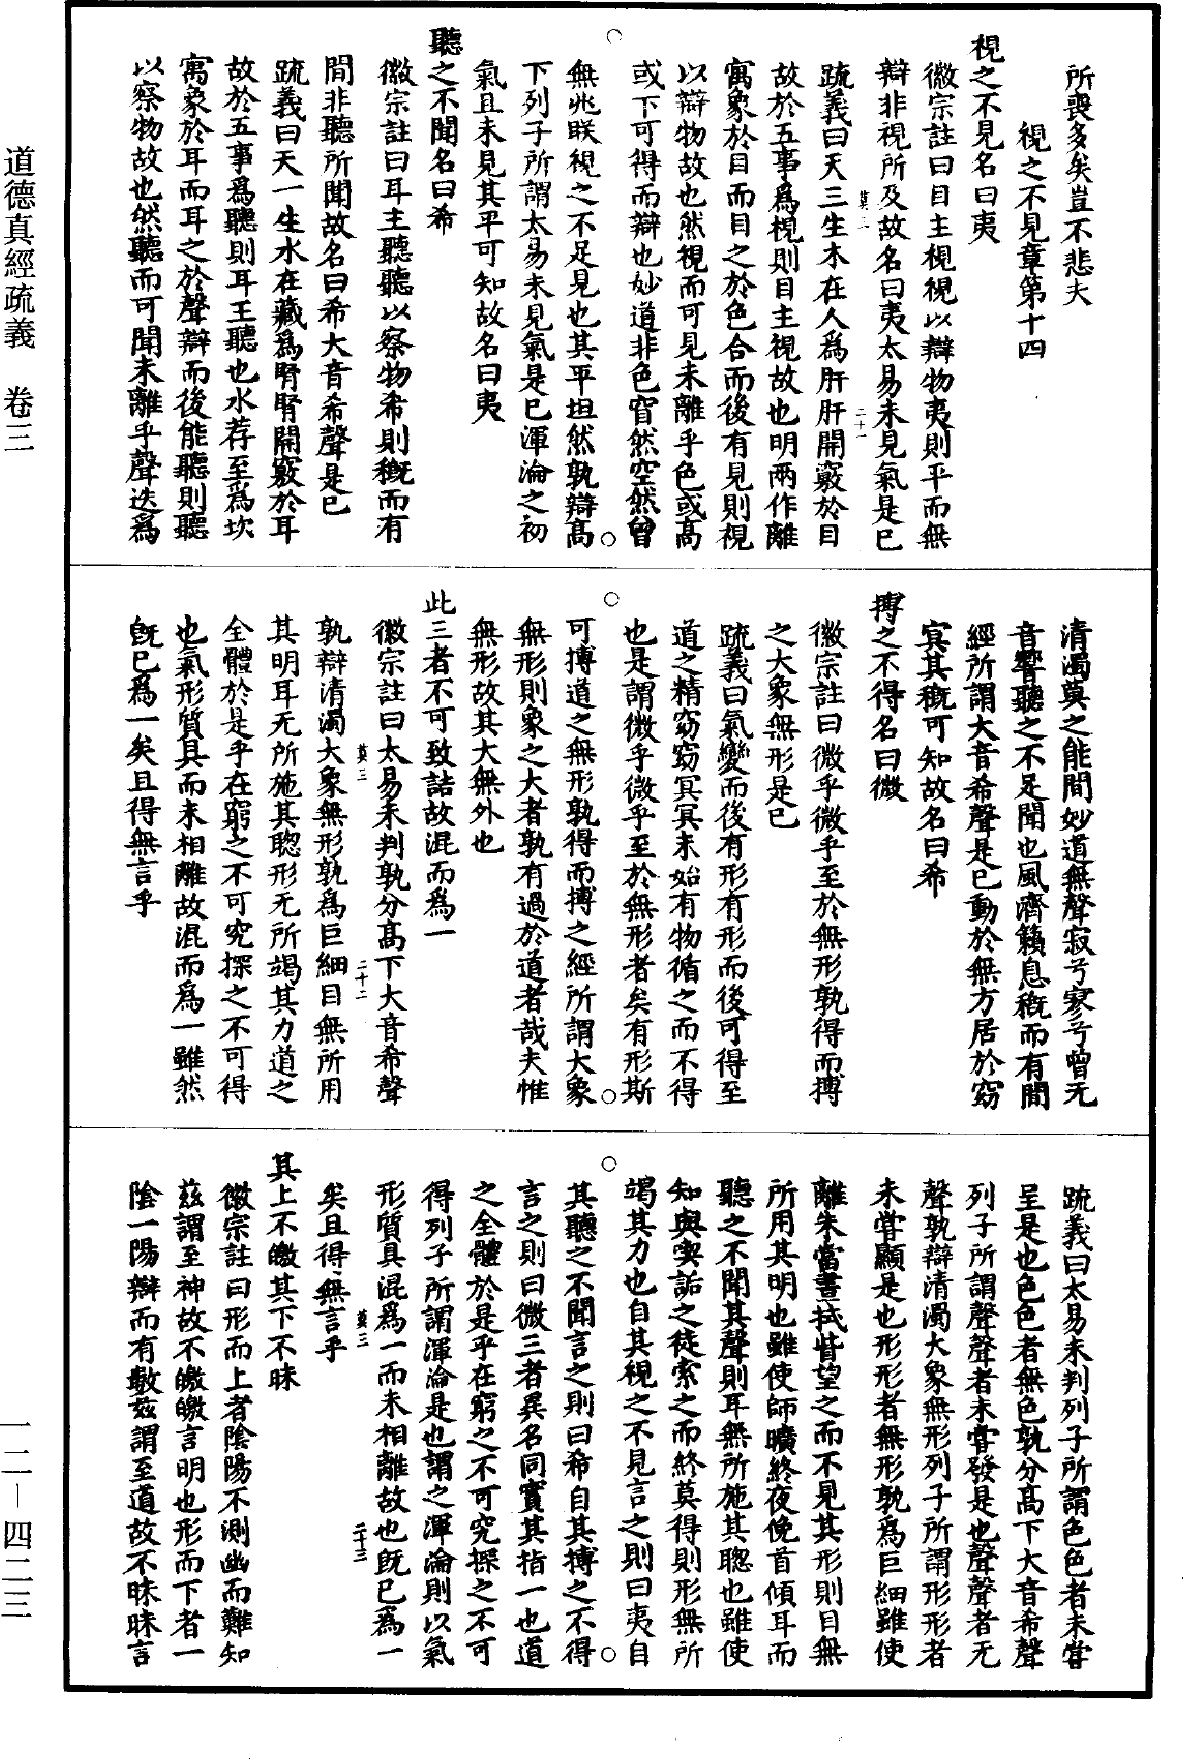 所喪多矣豈不悲夫
視之不見章第十四
視之不見名曰夷
徽宗註曰目主視視以辯物夷則平而無
辯非視所及故名曰夷太易未見氣是已
疏義曰天三生木在人為肝肝開竅於目
故於五事為視則目主視故也明兩作離
寓象於目而目之於色合而後有見則視
以辯物故也然視而可見未離乎色或高
或下可得而辯也妙道非色窅然空然曾
無兆眹視之不足見也其平坦然孰辯高
下列子所謂太易未見氣是已渾淪之初
氣且未見其平可知故名曰夷
聽之不聞名曰希
徽宗註曰耳主聽聽以察物希則槩而有
間非聽所聞故名曰希大音希聲是已
疏義曰天一生水在藏為腎腎開竅於耳
故於五事為聽則耳王聽也水荐至為坎
寓象於耳而耳之於聲辯而後能聽則聽
以察物故也然聽而可聞未離乎聲迭為
清濁莫之能間妙道無聲寂兮寥兮曾无
音響聽之不足聞也風濟籟息槩而有間
經所謂大音希聲是已動於無方居於窈
冥其槩可知故名曰希
搏之不得名曰微
徽宗註曰微乎微乎至於無形孰得而搏
之大象無形是已
疏義曰氣變而後有形有形而後可得至
道之精窈窈冥冥未始有物循之而不得
也是謂微乎微乎至於無形者矣有形斯
可搏道之無形孰得而搏之經所謂大象
無形則象之大者孰有過於道者哉夫惟
無形故其大無外也
此三者不可致詰故混而為一
徽宗註曰太易未判孰分高下大音希聲
孰辯清濁大象無形孰為巨細目無所用
其明耳无所施其聰形无所竭其力道之
全體於是乎在窮之不可究探之不可得
也氣形質具而未相離故混而為一雖然
既已為一矣且得無言乎
疏義曰太易未判列子所謂色色者未嘗
呈是也色色者無色孰分高下大音希聲
列子所謂聲聲者未嘗發是也聲聲者无
聲孰辯清濁大象無形列子所謂形形者
未嘗顯是也形形者無形孰為巨細雖使
離朱當晝拭眥望之而不見其形則目無
所用其明也雖使師曠終夜俛首傾耳而
聽之不聞其聲則耳無所施其聰也雖使
知與喫詬之徒索之而終莫得則形無所
竭其力也自其視之不見言之則曰夷自
其聽之不聞言之則曰希自其搏之不得
言之則曰微三者異名同實其指一也道
之全體於是乎在窮之不可究探之不可
得列子所謂渾淪是也謂之渾淪則以氣
形質具混為一而未相離故也既已為一
矣且得無言乎
其上不皦其下不昧
徽宗註曰形而上者陰陽不測幽而難知
茲謂至神故不皦皦言明也形而下者一
陰一陽辯而有數茲謂至道故不昧昧言
莫三
二十一
莫三
二十二
莫三
二十三
道德真經疏義 卷三
一二—四二三